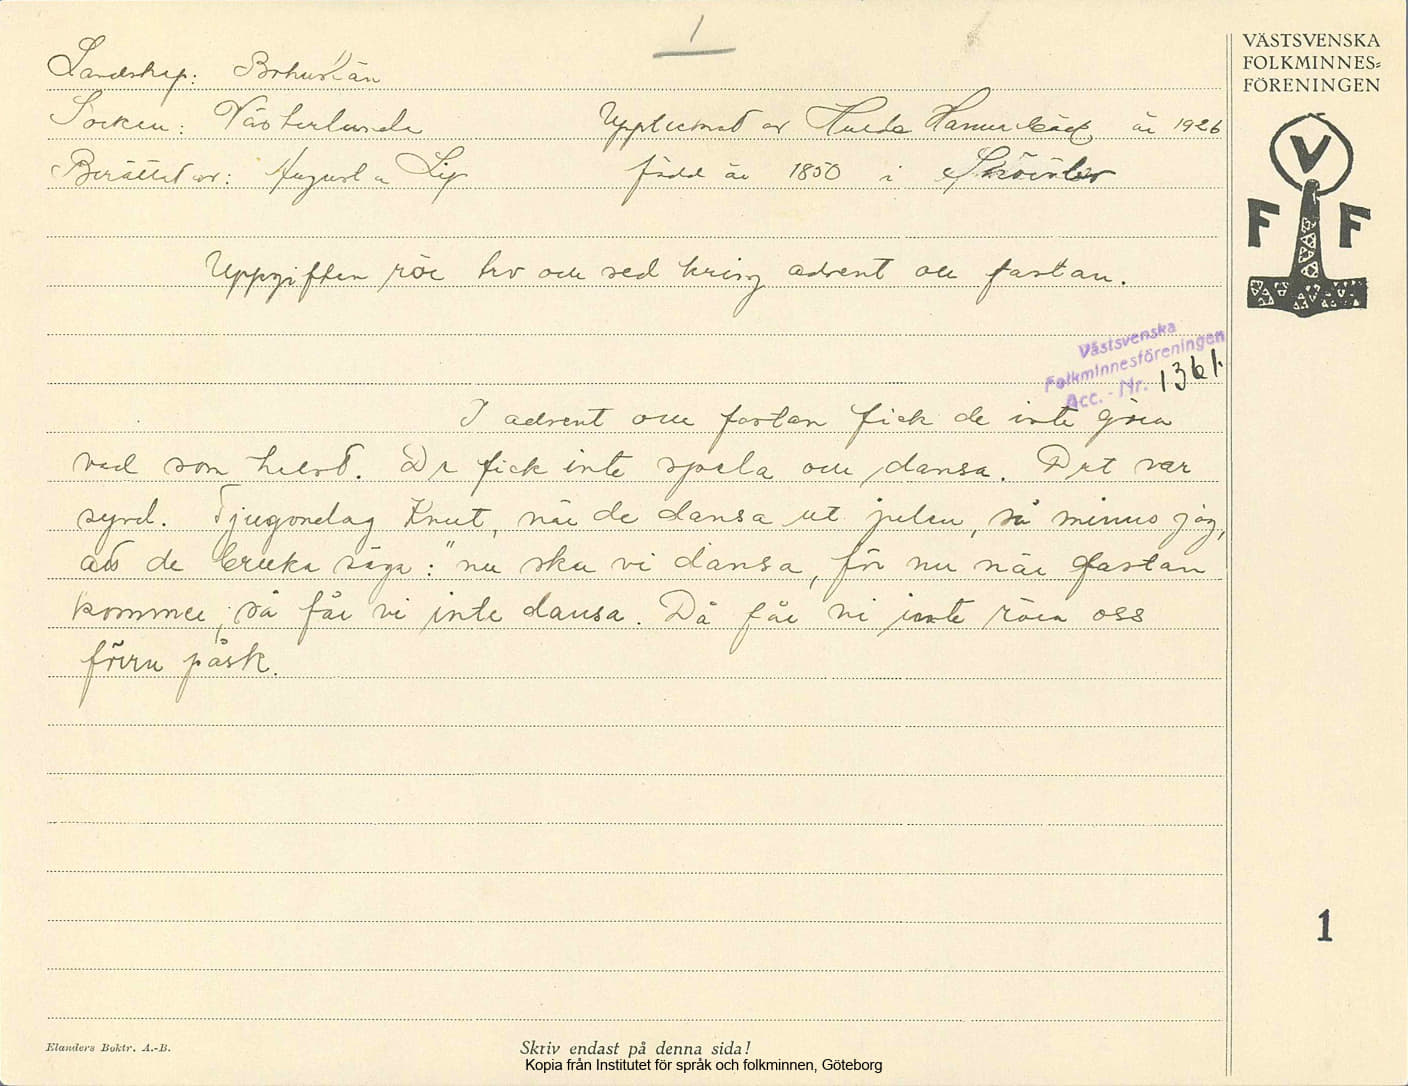 1
VÄSTSVENSKA
FOLKMINNES=
FÖRENINGEN
V
F F
Landskap: Bohuslän
Socken: Västerlanda Upptecknat av Hulda Hammarbäck år 1926
Berättat av: Augusta Lix född år 1850 i
Uppgiften rör tro och sed kring advent och fastan.
Västsvenska
Folkminnesföreningen
Acc. - Nr. 1361.
I advent och fastan fick de inte göra
vad som helst. De fick inte spela och dansa. Det var
synd. Tjugondag Knut, när de dansa ut julen, så minns jag,
att de bruka säga: "nu ska vi dansa, för nu när fastan
kommer, så får vi inte dansa. Då får vi inte röra oss
förrn påsk.
1
Elanders Boktr. A.-B.
Skriv endast på denna sida!
Kopia från Institutet för språk och folkminnen, Göteborg